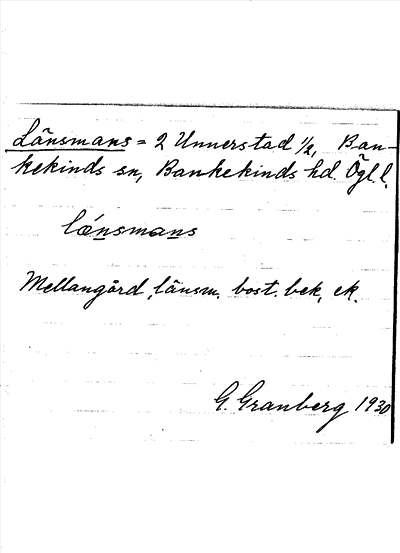 Länsmans = 2 Unnerstad 1/2, Ban-
kekinds sn, Bankekinds hd. Ögl. l.
lǽnsmans
Mellangård, länsm. bost. bek, ek.
G. Granberg 1930